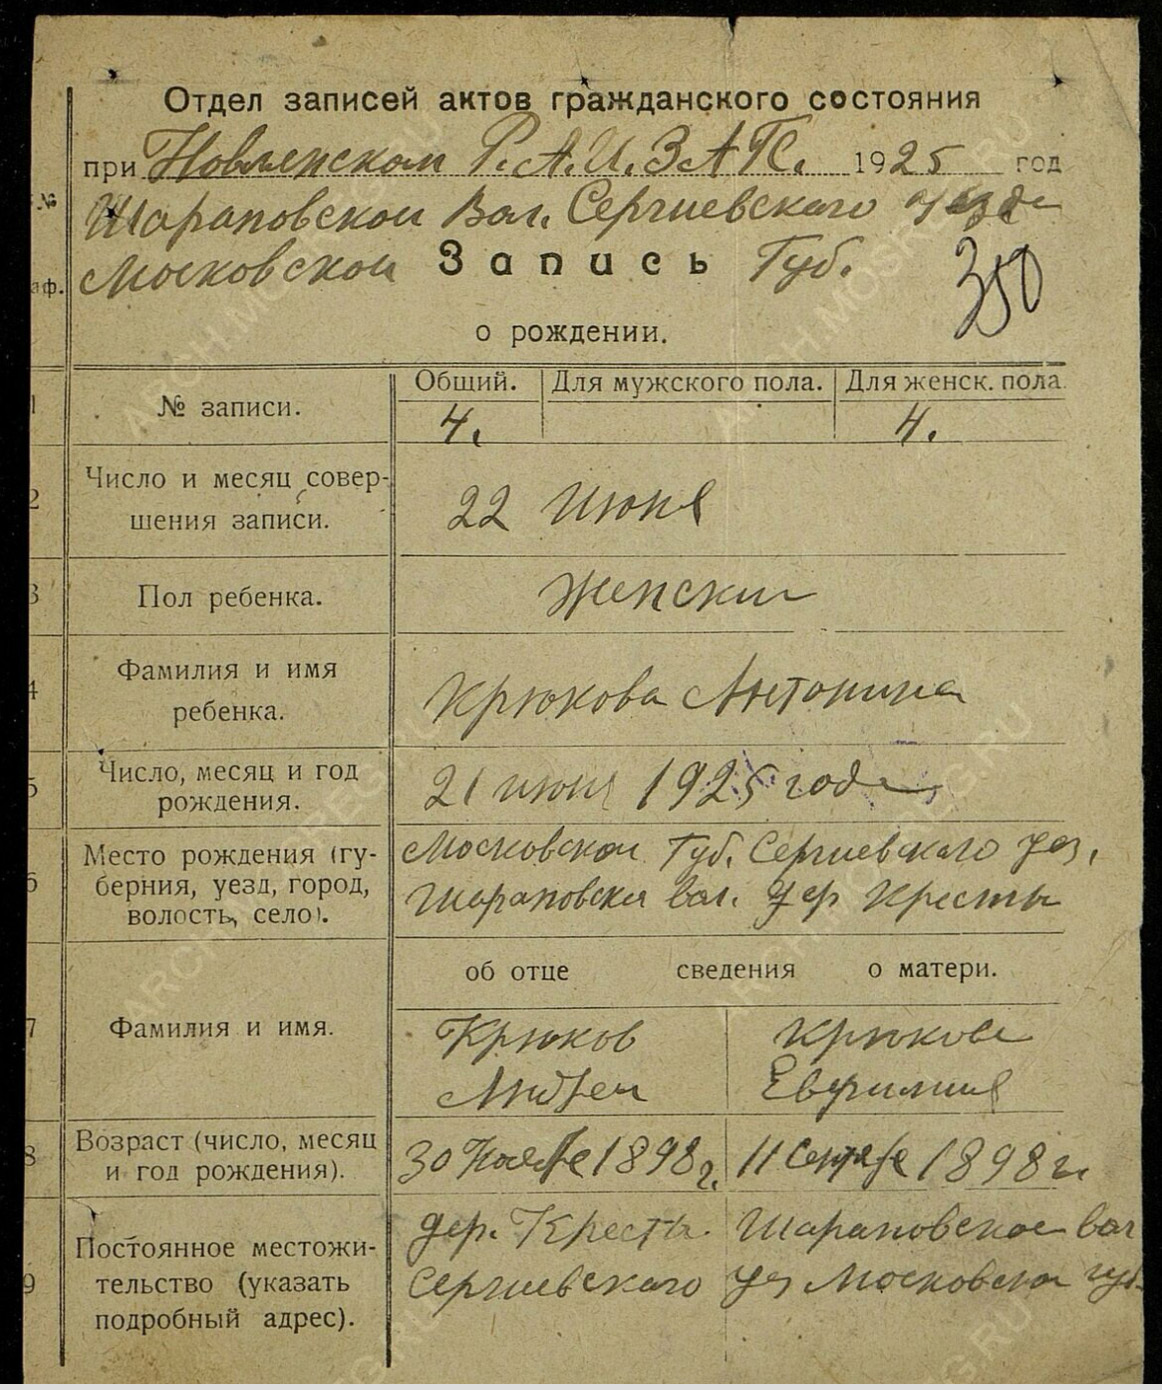 Отдел записей актов гражданского состояния
при Новленском Р.А.И.З.А.Г.С. 1925 год
№
Шараповской Вол. Сергиевского уезда
Московской Запись Губ.
аф.
350
о рождении.
Общий. Для мужского пола. Для женск. пола.
1 № записи. 4. 4.
2 Число и месяц совер-
шения записи. 22 Июня
3 Пол ребенка. Женский
4 Фамилия и имя
ребенка. Крюкова Антонина
5 Число, месяц и год
рождения. 21 июня 1925 года
6 Место рождения (гу-
берния, уезд, город,
волость, село).
Московской Губ. Сергиевского уез.
Шараповская вол. дер Кресты
об отце сведения о матери.
7 Фамилия и имя.
Крюков Крюкова
Андрей Евфимия
8 Возраст (число, месяц
и год рождения). 30 Ноября 1898 г. 11 Сентября 1898 г.
9 Постоянное местожи-
тельство (указать
подробный адрес).
дер. Кресты Шараповской вол
Сергиевского уез Московской губ.
ARCH.MOSREG.RU